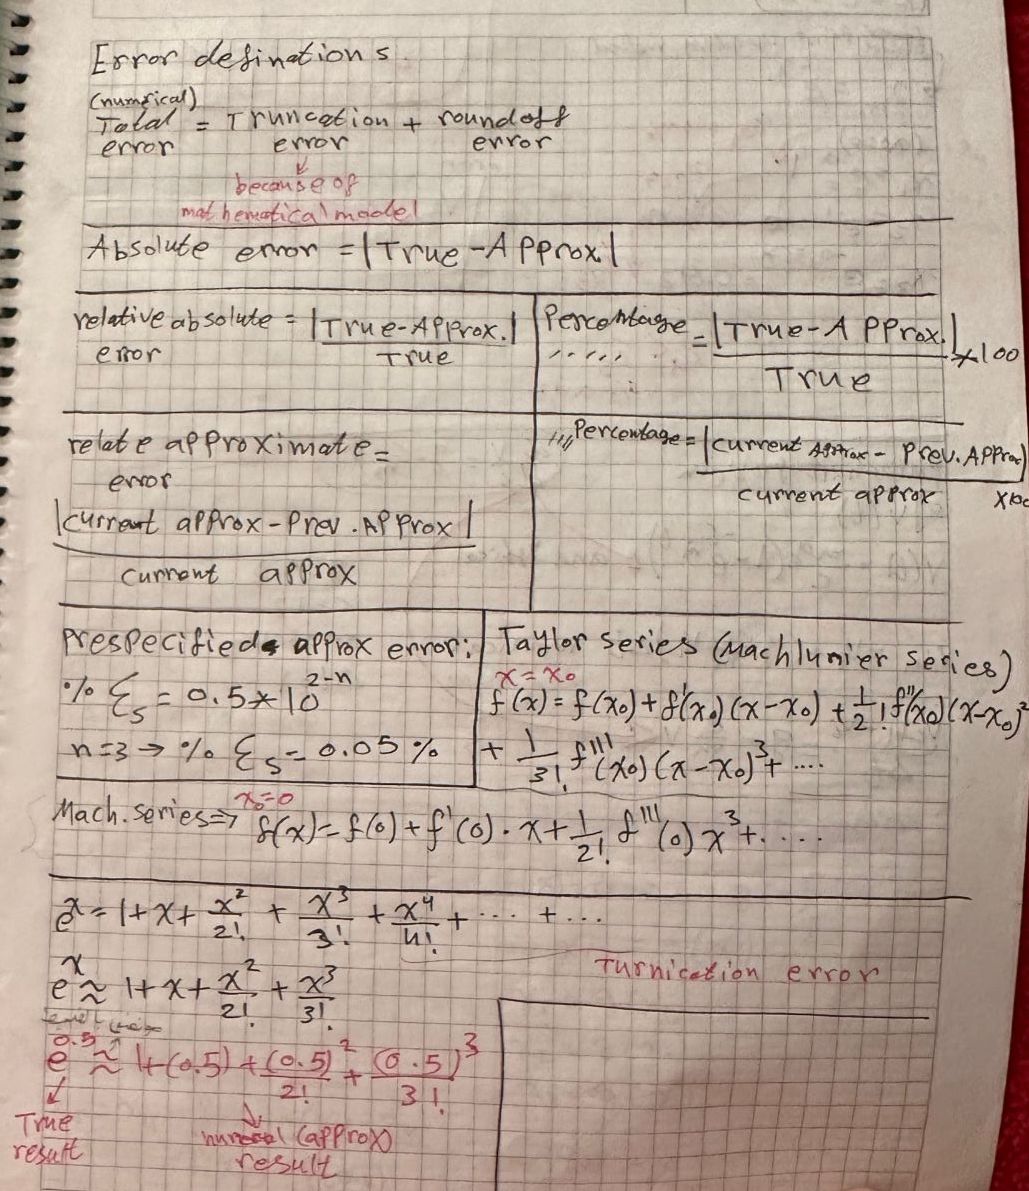 Error definations
(numrical)
Total = Truncation + roundoff
error error error
because of
mathematical model
Absolute error = |True - Approx.|
relative absolute = |True-Approx.|
error True
Percentage = |True - Approx.| *100
True
relate approximate =
error
|current approx - Prev. Approx|
current approx
Percentage = |current Approx - Prev. Approx|
current approx x100
Prespecified approx error:
% Ɛs = 0.5*10^2-n
n=3 → % Ɛs = 0.05 %
Taylor series (Machlunier series)
x = x₀
f(x) = f(x₀) + f'(x₀)(x-x₀) + 1/2! f''(x₀)(x-x₀)²
+ 1/3! f'''(x₀)(x-x₀)³ + ....
x₀=0
Mach. series ⇒ f(x) = f(0) + f'(0) · x + 1/2! f'''(0) x³ + ....
e^x = 1 + x + x²/2! + x³/3! + x⁴/4! + ... + ...
Turnication error
e^x ≈ 1 + x + x²/2! + x³/3!
e^0.5 ≈ 1+(0.5) + (0.5)²/2! + (0.5)³/3!
True
result
(approx)
result